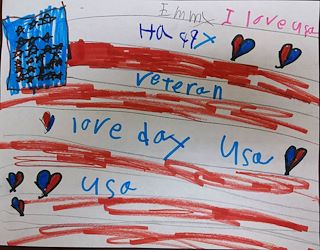 Emmy I love usa
Happy
veteran
love day usa
usa